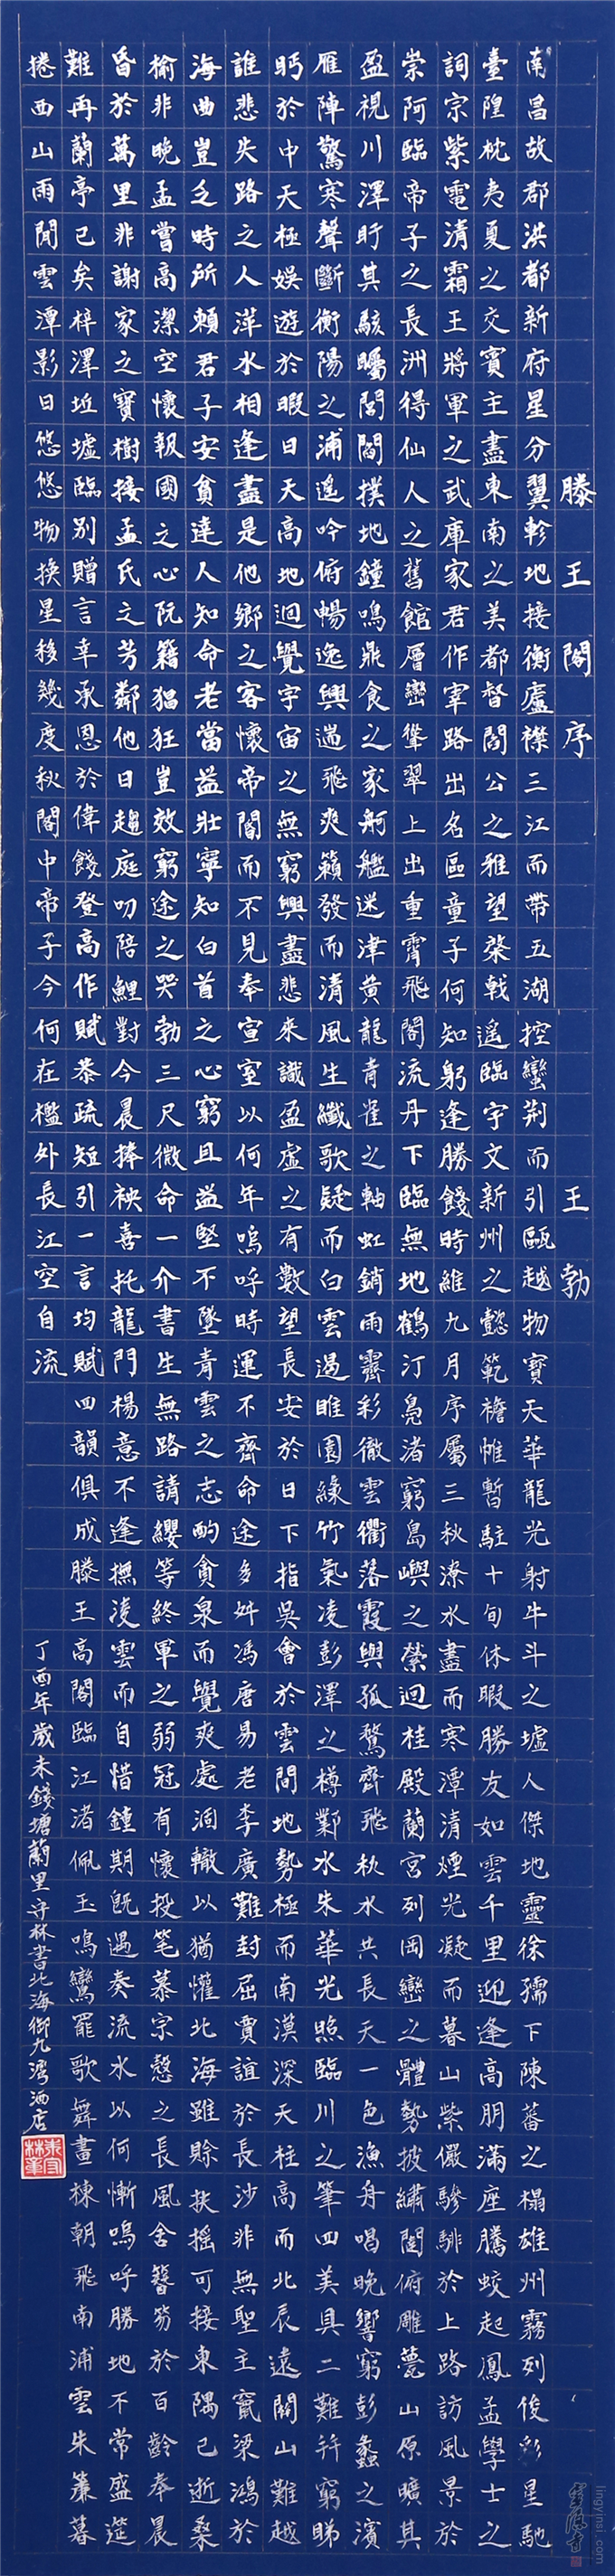 滕王閣序 王勃
南昌故郡洪都新府星分翼軫地接衡廬襟三江而帶五湖控蠻荆而引甌越物寶天華龍光射牛斗之墟人傑地靈徐孺下陳蕃之榻雄州霧列俊彩星馳
臺隍枕夷夏之交賓主盡東南之美都督閻公之雅望棨戟遙臨宇文新州之懿範襜帷暫駐十旬休暇勝友如雲千里迎逢高朋滿座騰蛟起鳳孟學士之
詞宗紫電清霜王將軍之武庫家君作宰路出名區童子何知躬逢勝餞時維九月序屬三秋潦水盡而寒潭清煙光凝而暮山紫儼驂騑於上路訪風景於
崇阿臨帝子之長洲得仙人之舊館層巒聳翠上出重霄飛閣流丹下臨無地鶴汀鳧渚窮島嶼之縈迴桂殿蘭宮列岡巒之體勢披繡闥俯雕甍山原曠其
盈視川澤盱其駭矚閭閻撲地鐘鳴鼎食之家舸艦迷津黄龍青雀之軸虹銷雨霽彩徹雲衢落霞與孤鶩齊飛秋水共長天一色漁舟唱晚響窮彭蠡之濱
雁陣驚寒聲斷衡陽之浦遙吟俯暢逸興遄飛爽籟發而清風生纖歌凝而白雲遏睢園綠竹氣凌彭澤之樽鄴水朱華光照臨川之筆四美具二難并窮睇
眄於中天極娛遊於暇日天高地迥覺宇宙之無窮興盡悲來識盈虛之有數望長安於日下指吳會於雲間地勢極而南溟深天柱高而北辰遠關山難越
誰悲失路之人萍水相逢盡是他鄉之客懷帝閽而不見奉宣室以何年嗚呼時運不齊命途多舛馮唐易老李廣難封屈賈誼於長沙非無聖主竄梁鴻於
海曲豈乏時所賴君子安貧達人知命老當益壯寧知白首之心窮且益堅不墜青雲之志酌貪泉而覺爽處涸轍以猶懽北海雖賒扶搖可接東隅已逝桑
榆非晚孟嘗高潔空懷報國之心阮籍猖狂豈效窮途之哭勃三尺微命一介書生無路請纓等終軍之弱冠有懷投筆慕宗慤之長風舍簪笏於百齡奉晨
昏於萬里非謝家之寶樹接孟氏之芳鄰他日趨庭叨陪鯉對今晨捧袂喜托龍門楊意不逢撫凌雲而自惜鍾期既遇奏流水以何慚嗚呼勝地不常盛筵
難再蘭亭已矣梓澤坵墟臨別贈言幸承恩於偉餞登高作賦恭疏短引一言均賦四韻俱成滕王高閣臨江渚佩玉鳴鸞罷歌舞畫棟朝飛南浦雲朱簾暮
捲西山雨閒雲潭影日悠悠物換星移幾度秋閣中帝子今何在檻外長江空自流
丁酉年歲末錢塘蘭里守林書北海御九灣酒店
lingyinsi.com